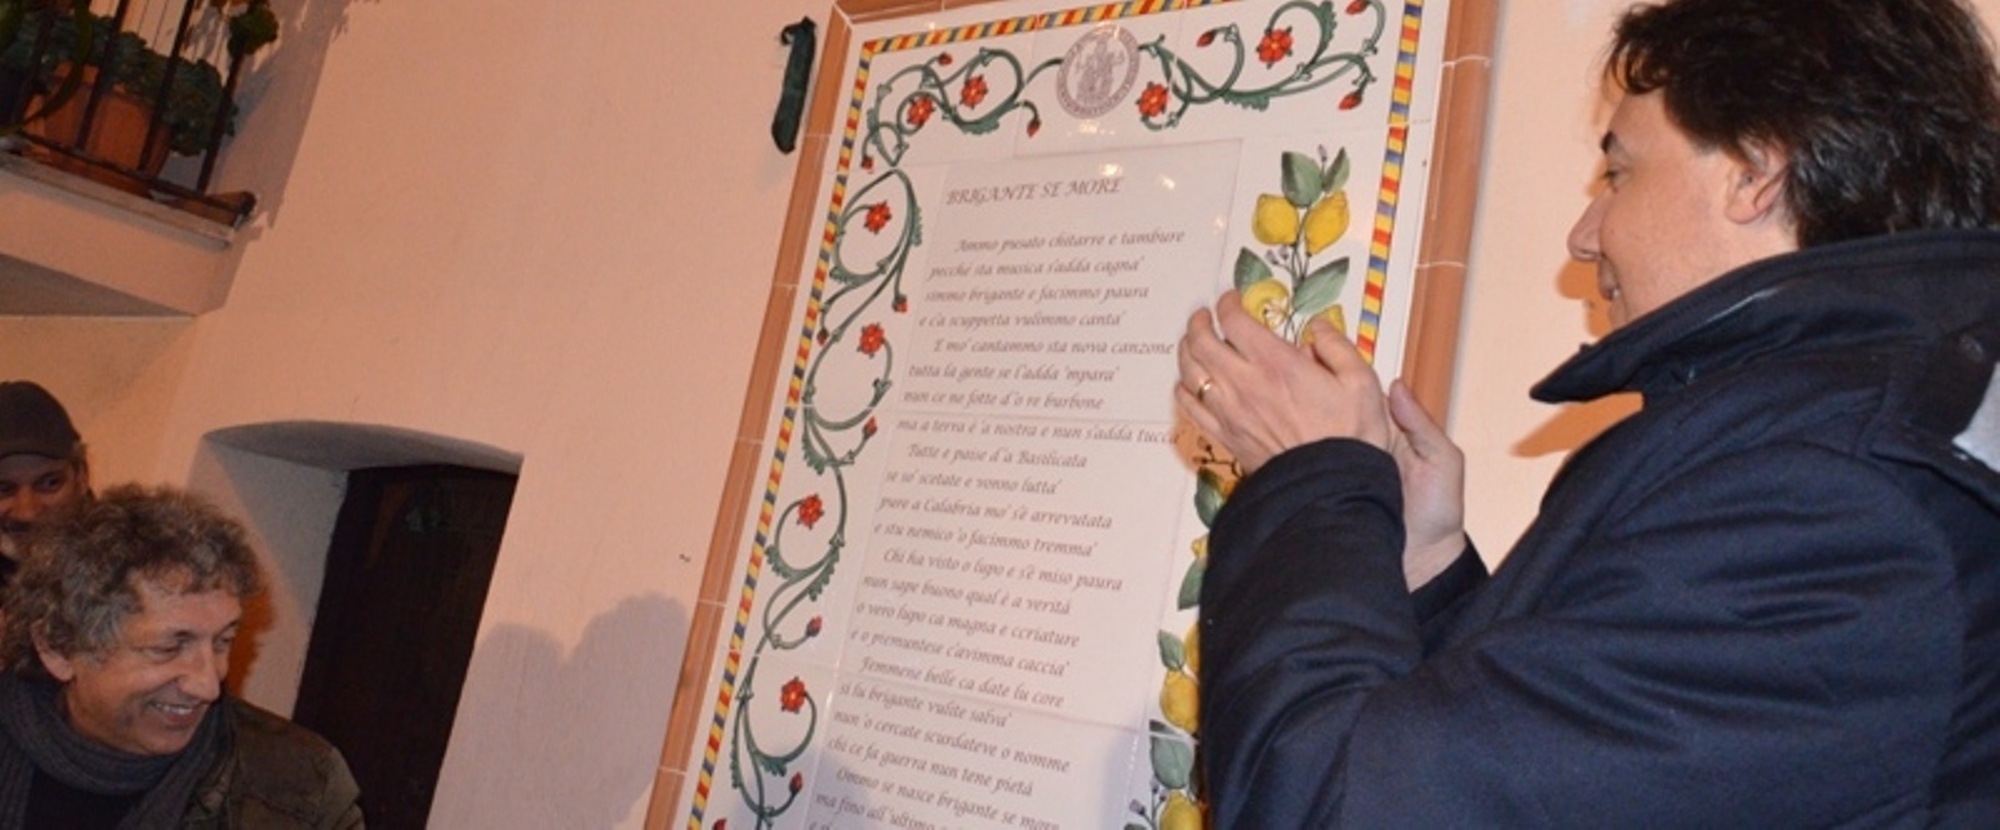 BRIGANTE SE MORE
Ammo pusato chitarre e tambure
pecché sta musica s'adda cagna'
simmo brigante e facimmo paura
e ca scuppetta vulimmo canta'
E mo' cantammo sta nova canzone
tutta la gente se l'adda 'mpara'
nun ce ne fotte d'o re burbone
ma a terra è 'a nostra e nun s'adda tucca'
Tutte e paise d'a Basilicata
se so' scetate e vonno lutta'
pure a Calabria mo' s'è arrevutata
e stu nemico 'o facimmo tremma'
Chi ha visto o lupo e s'è miso paura
nun sape buono qual è a verità
o vero lupo ca magna e ccriature
è o piemuntese c'avimma caccia'
Femmene belle ca date lu core
si lu brigante vulite salva'
nun 'o cercate scurdateve o nomme
chi ce fa guerra nun tene pietà
Ommo se nasce brigante se more
ma fino all'ultimo